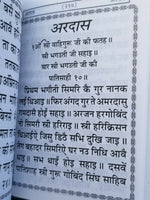 (११९)
अरदास
१ओं स्री वाहिगुरू जी की फतह॥
स्री भगउती जी सहाइ॥
वार स्री भगउती जी की
पातिसाही १०॥
प्रिथम भगौती सिमरि कै गुर नानक
लई धिआइ॥ फिर अंगद गुर ते अमरदासु
रामदासै होई सहाइ॥ अरजन हरगोबिंद
नो सिमरौ स्री हरिराइ॥ स्री हरिक्रिसन
धिआइऐ जिसु डिठै सभि दुखि जाइ॥
तेग बहादर सिमरिऐ घर नउ निधि आवै
धाइ॥ सभ थाई होइ सहाइ॥ दसवें
पातशाह स्री गुरू गोबिंद सिंघ साहिब